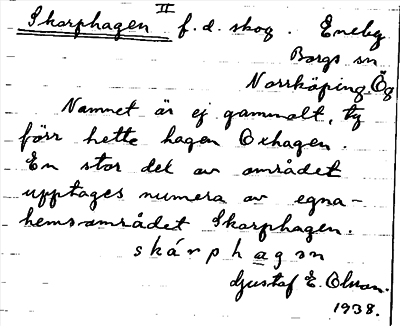 II
Skarphagen f.d. skog. Eneby
Borgs sn
Norrköping. Ög
Namnet är ej gammalt, ty
förr hette hagen Oxhagen.
En stor del av området
upptages numera av egna-
hemsområdet Skarphagen.
skárphagən
Gustaf E. Olsson.
1938.